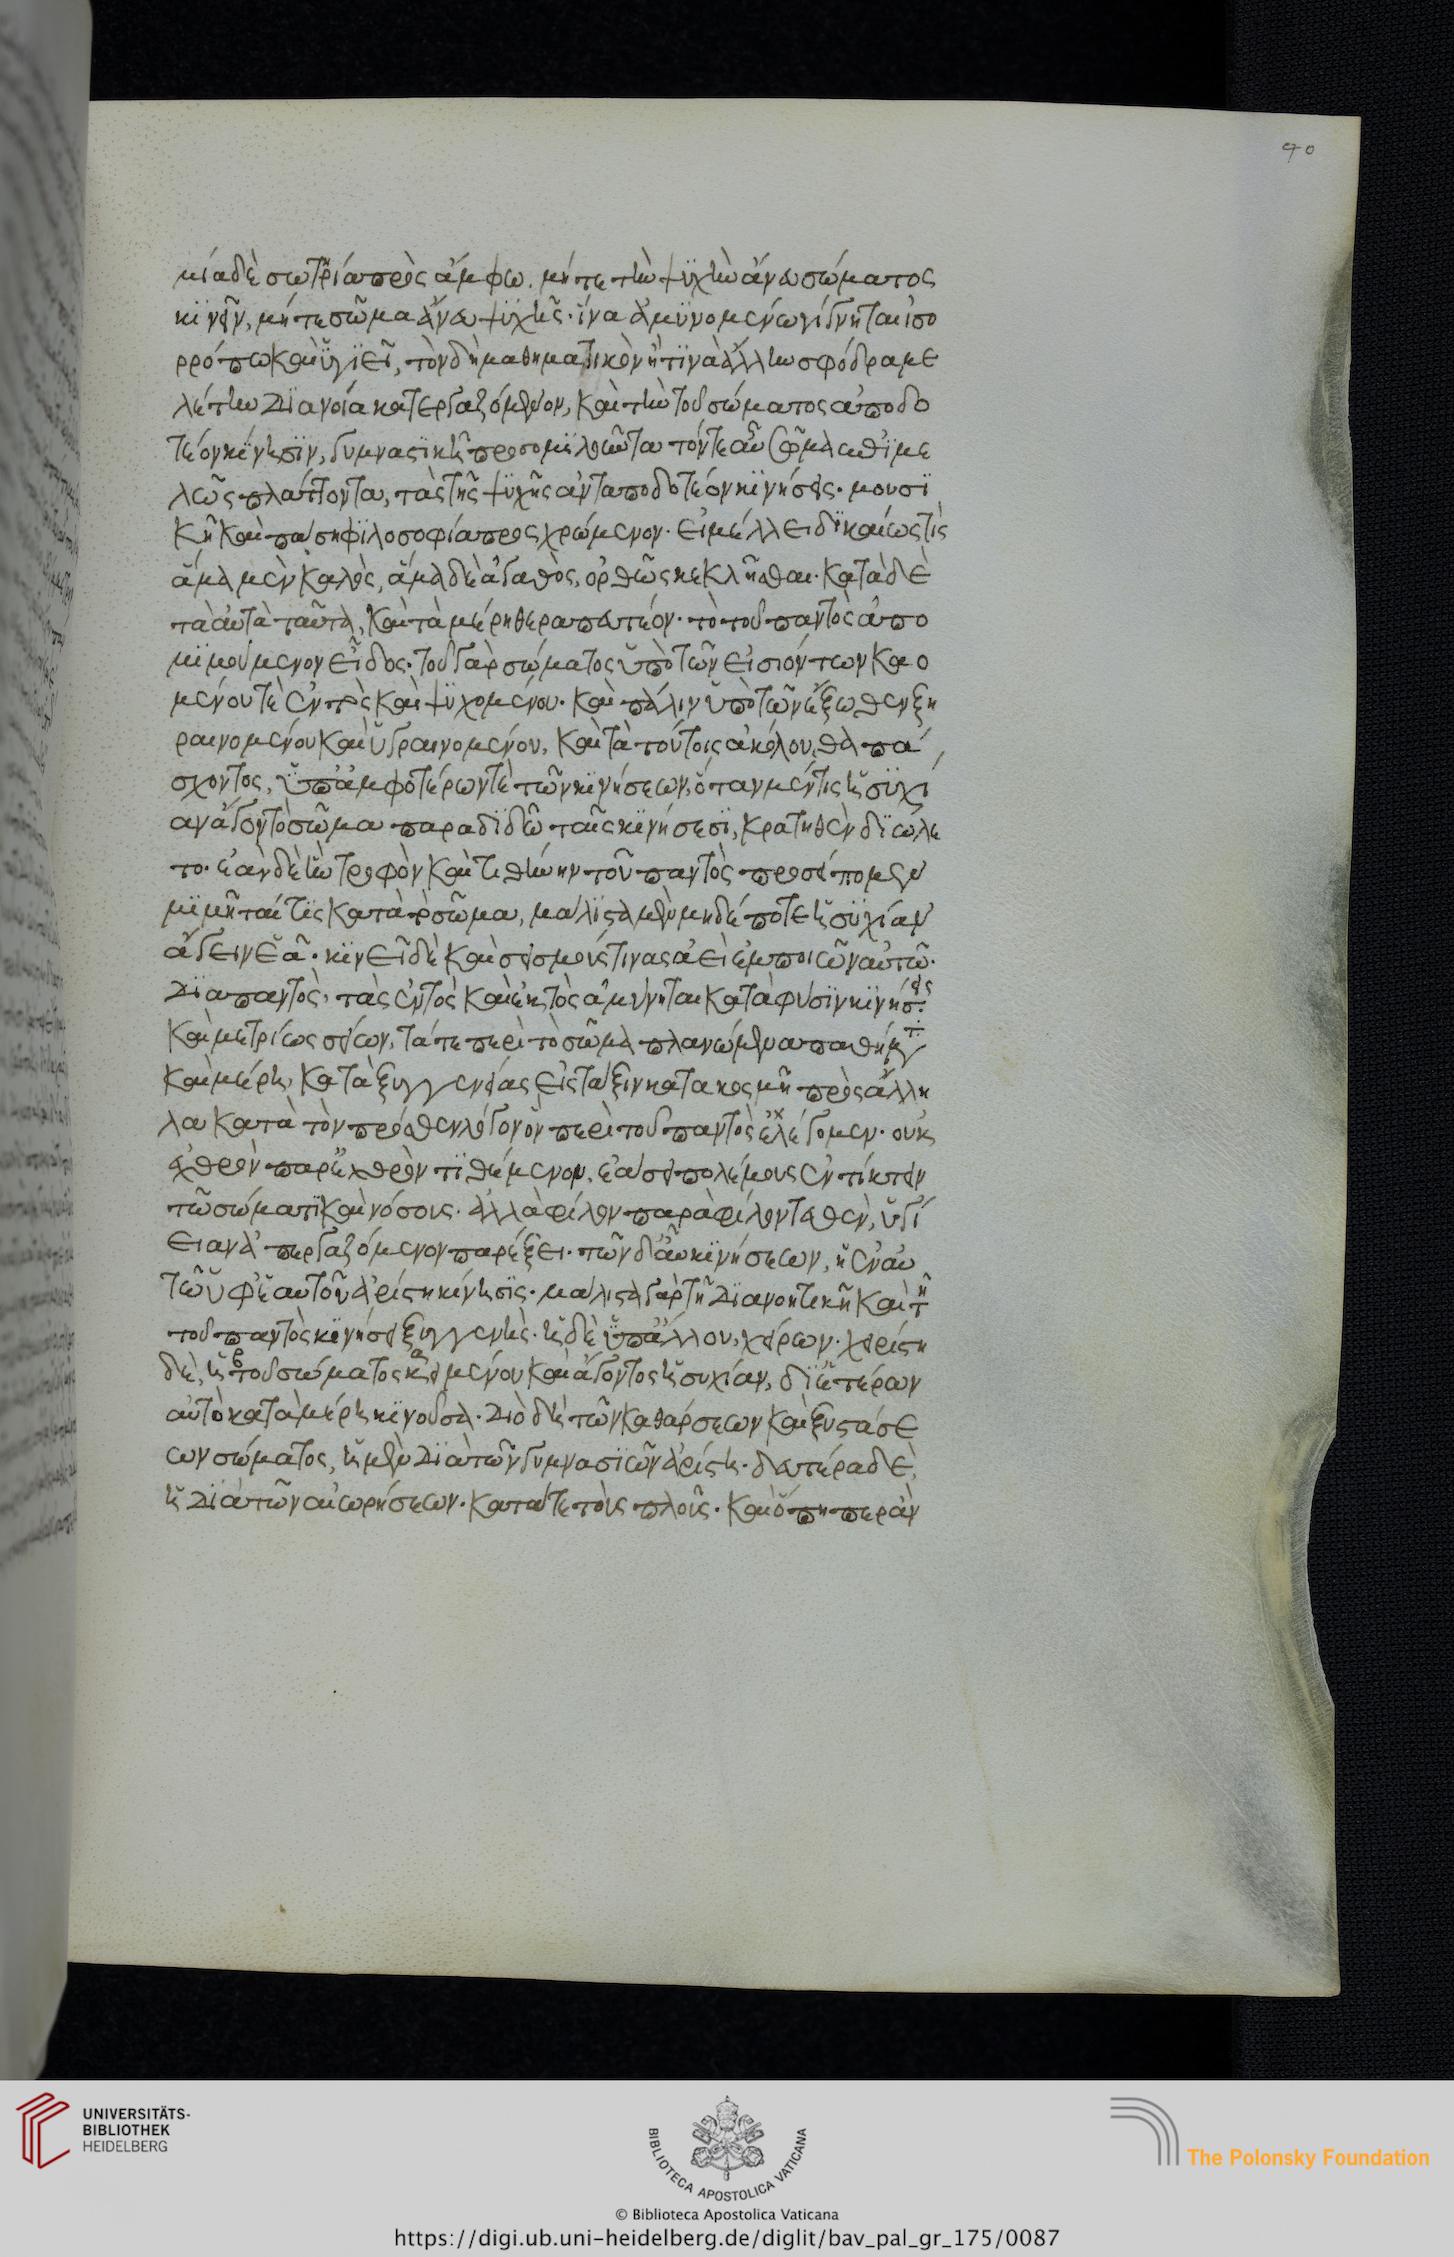 90
μία δὲ σωτηρία πρὸς ἄμφω. μήτε τὴν ψϋχὴν ἄνευ σώματος
κϊνεῖν, μήτε σῶμα ἄνευ ψϋχῆς· ἵνα ἀμϋνομένω γίγνηται ἰσο
ρρόπω καὶ ὑγϊεῖ, τὸν δὴ μαθηματικὸν ἤ τϊνα ἄλλην σφόδρα με
λέτην διανοία κατεργαζόμενον, καὶ τὴν τοῦ σώματος ἀποδο
τέον κίνησϊν, γυμναστϊκῆ προσομϊλοῦντα τόντε αὖ σῶμα ἐπϊμε
λῶς πλάττοντα, τὰς τῆς ψϋχῆς ἀνταποδοτέον κϊνήσεις· μουσϊ
κῆ καὶ πάση φϊλοσοφία προσχρώμενον· εἰ μέλλει δϊκαίως τὶς
ἅμα μὲν καλὸς, ἅμα δὲ ἀγαθὸς, ὀρθῶς κεκλῆσθαι· κατὰ δὲ
τὰ αὐτὰ ταῦτα, καὶ τὰ μέρη θεραπευτέον· τὸ τοῦ παντὸς ἀπο
μϊμούμενον εἶδος· τοῦ γὰρ σώματος ὑπὸ τῶν εἰσιόντων καο
μένου τὲ ἐντὸς καὶ ψϋχομένου· καὶ πάλιν ὑπὸ τῶν ἔξωθεν ξη
ραινομένου καὶ ὑγραινομένου, καὶ τὰ τούτοις ἀκόλουθα πά
σχοντος, ὑπ' ἀμφοτέρων τὲ τῶν κϊνήσεων, ὅταν μέν τις ἡσϋχί
αν ἄγον τὸ σῶμα παραδϊδῶ ταῖς κϊνήσεσϊ, κρατηθὲν δϊώλε
το· ἐὰν δὲ ἣν τροφὸν καὶ τιθήνην τοῦ παντὸς προσείπομεν
μϊμῆταί τϊς κατὰ τὸ σῶμα, μάλϊστα μὲν μηδέποτε ἡσϋχίαν
ἄγειν ἐᾶ· κϊνεῖ δὲ καὶ σεισμούς τινας ἀεὶ ἐμποιῶν αὐτῶ·
διαπαντὸς, τὰς ἐντὸς καὶ ἐκτὸς ἀμύνηται κατὰ φύσϊν κϊνήσεις
καὶ μετρίως σείων, τά τε περὶ τὸ σῶμα πλανώμενα παθήματ
καὶ μέρη, κατὰ ξυγγενείας εἰς τάξιν κατακοσμῆ πρὸς ἄλλη
λα κατὰ τὸν πρόσθεν λόγον ὃν περὶ τοῦ παντὸς ἐλέγομεν· οὐκ
ἐχθρὸν παρ' ἐχθρὸν τϊθέμενον, ἐάσει πολέμους ἐντίκτειν
τῶ σώματϊ καὶ νόσους· ἀλλὰ φίλον παρὰ φίλον τεθὲν, ὑγί
ειαν ἀπεργαζόμενον παρέξει· τῶν δ' αὖ κϊνήσεων, ἡ ἐν αὑ
τῶ ὑφ' ἑαυτοῦ ἀρίστη κίνησϊς· μάλιστα γὰρ τῆ διανοητϊκῆ καὶ τῆ
τοῦ παντὸς κϊνήσει ξυγγενὴς· ἡ δὲ ὑπ' ἄλλου, χείρων· χειρίστη
δὲ, ἡ τοῦ σώματος κειμένου καὶ ἄγοντος ἡσυχίαν, δϊ' ἑτέρων
αὐτὸ κατὰ μέρη κϊνοῦσα· διὸ δὴ τῶν καθάρσεων καὶ ξυστάσε
ων σώματος, ἡ μὲν διὰ τῶν γυμνασϊῶν ἀρίστη· δευτέρα δὲ,
ἡ διὰ τῶν αἰωρήσεων· κατά τε τοὺς πλοῦς· καὶ ὅπη περὰν
UNIVERSITÄTS-
BIBLIOTHEK
HEIDELBERG
BIBLIOTECA APOSTOLICA VATICANA
The Polonsky Foundation
© Biblioteca Apostolica Vaticana
https://digi.ub.uni-heidelberg.de/diglit/bav_pal_gr_175/0087